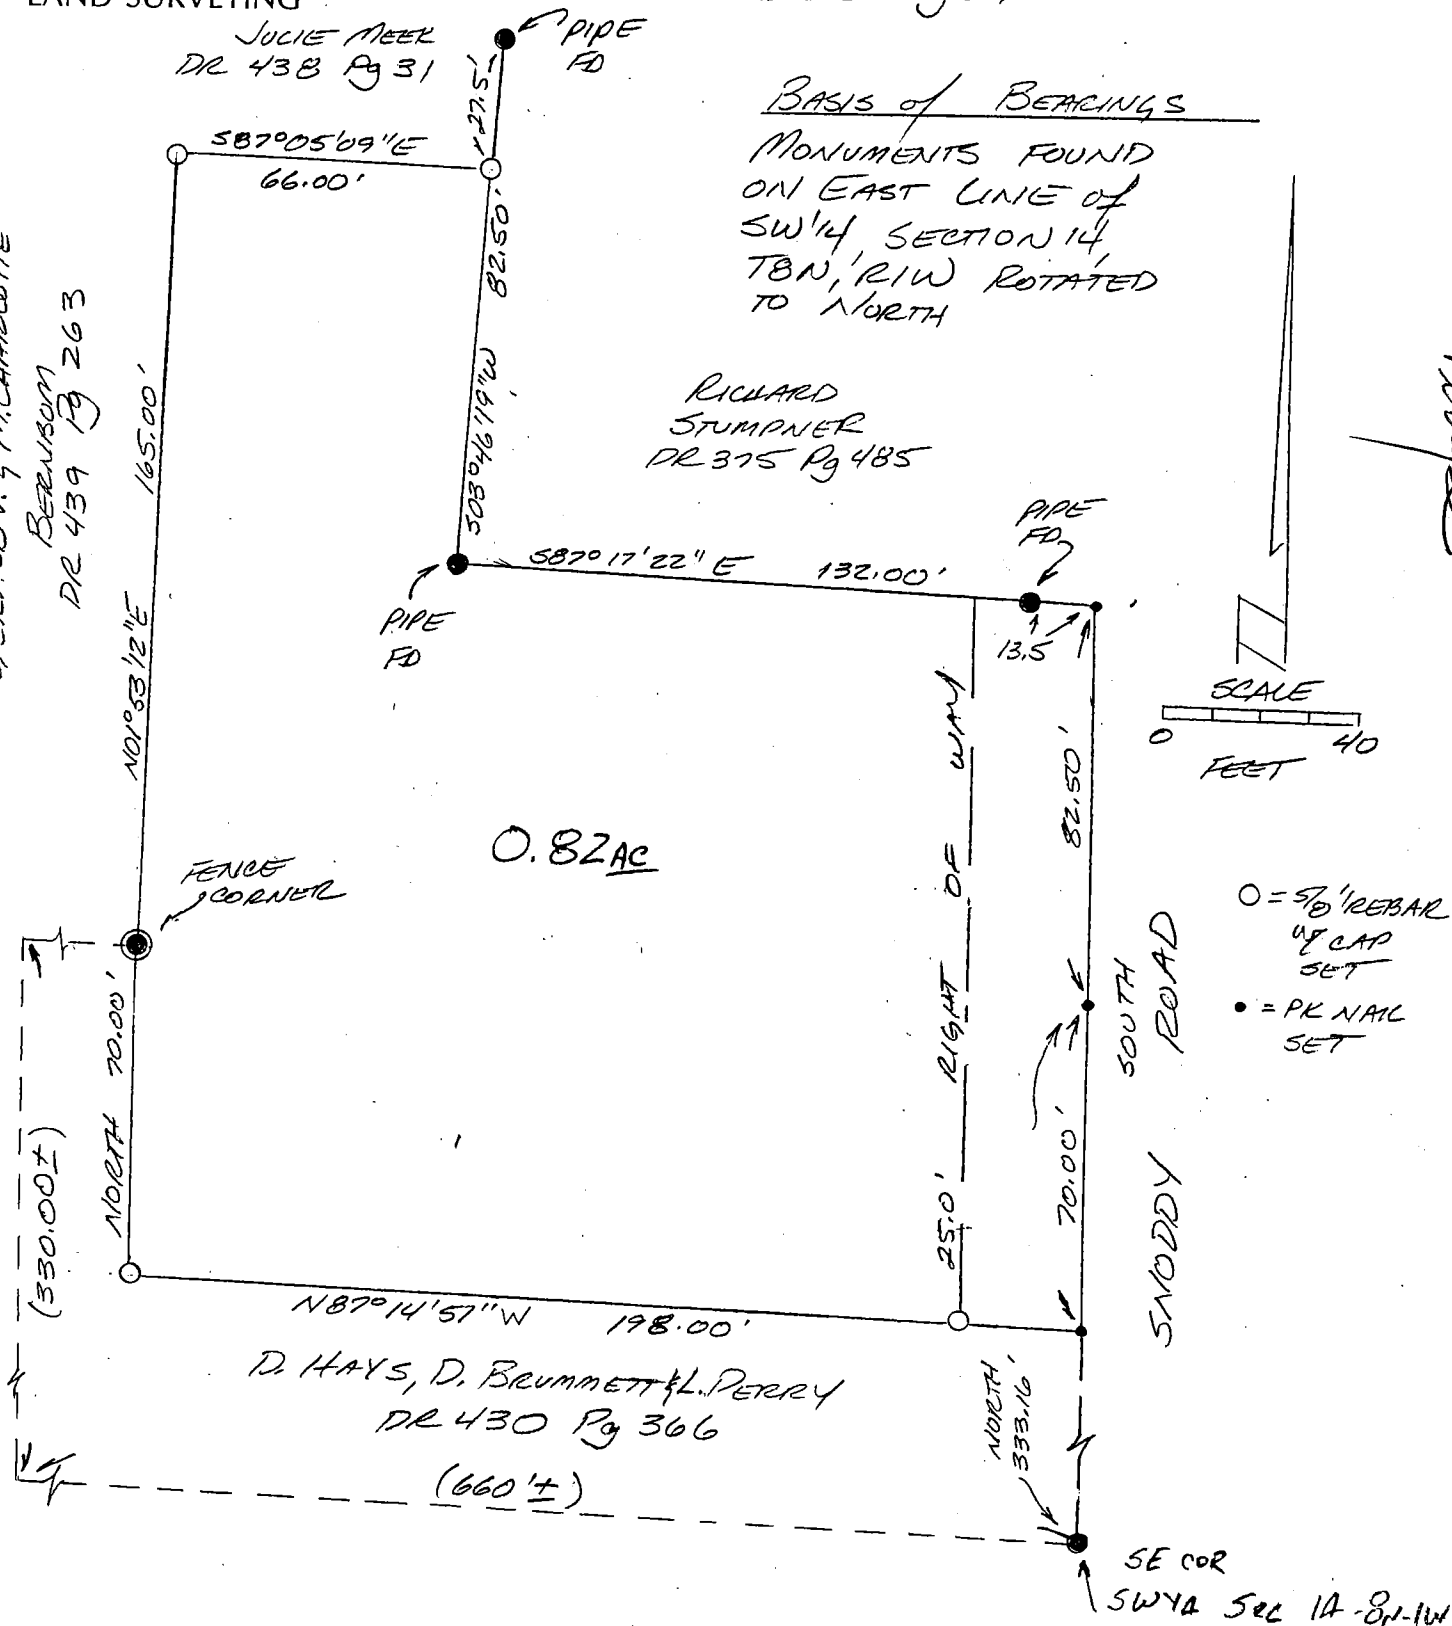 LAND SURVEYING
JULIE MEEK
DR 438 Pg 31
PIPE
FD
27.5'
S87°05'09"E
66.00'
BASIS of BEARINGS
MONUMENTS FOUND
ON EAST LINE of
SW 1/4 SECTION 14,
T8N, R1W ROTATED
TO NORTH
BERNBOM
DR 439 Pg 263
165.00'
N01°53'12"E
82.50'
S03°46'19"W
RICHARD
STUMPNER
DR 375 Pg 485
PIPE
FD
S87°17'22"E 132.00'
PIPE
FD
13.5
SCALE
0 40
FEET
0.82 AC
RIGHT OF WAY
25.0'
82.50'
70.00'
FENCE
CORNER
NORTH 70.00'
(330.00±)
SOUTH
SNODDY ROAD
O = 5/8" REBAR
W/ CAP
SET
• = PK NAIL
SET
N87°14'57"W 198.00'
D. HAYS, D. BRUMMETT & L. PERRY
DR 430 Pg 366
(660'±)
NORTH
333.16'
SE COR
SW 1/4 SEC 14-8N-1W